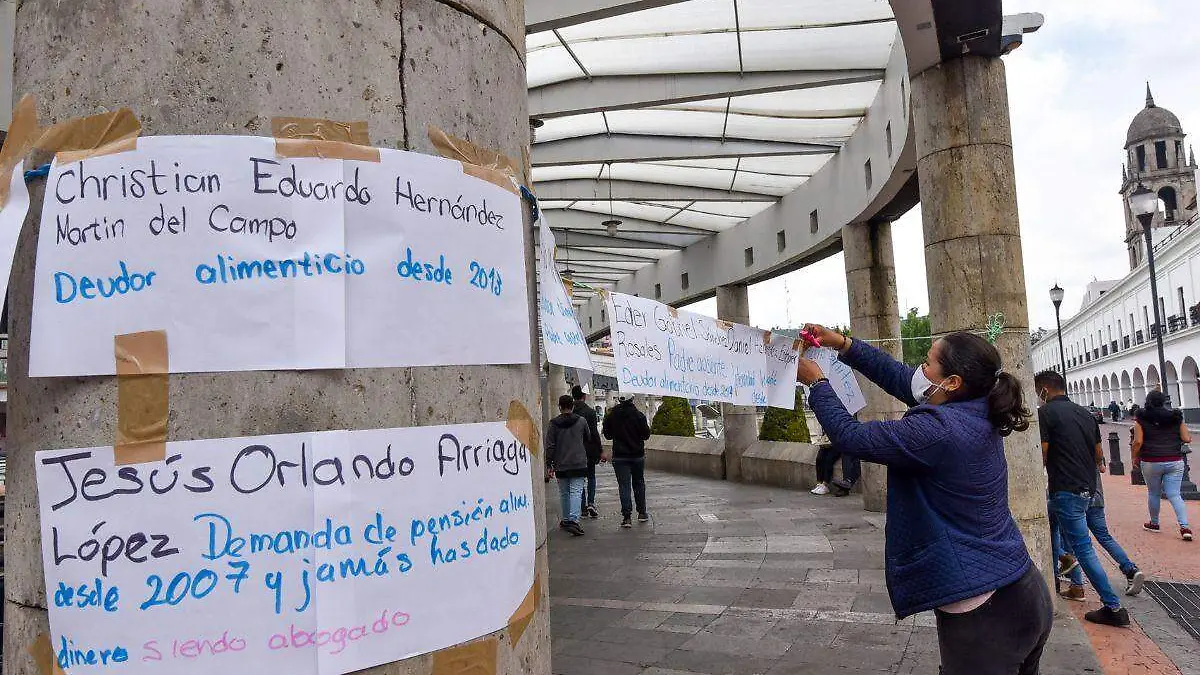 Christian Eduardo Hernández
Martin del Campo
Deudor alimenticio desde 2013
Jesús Orlando Arriaga
López Demanda de pensión alim.
desde 2007 y jamás has dado
dinero siendo abogado
Eder Gabriel
Rosales Padre ausente
Deudor alimenticio desde
Daniel
desde